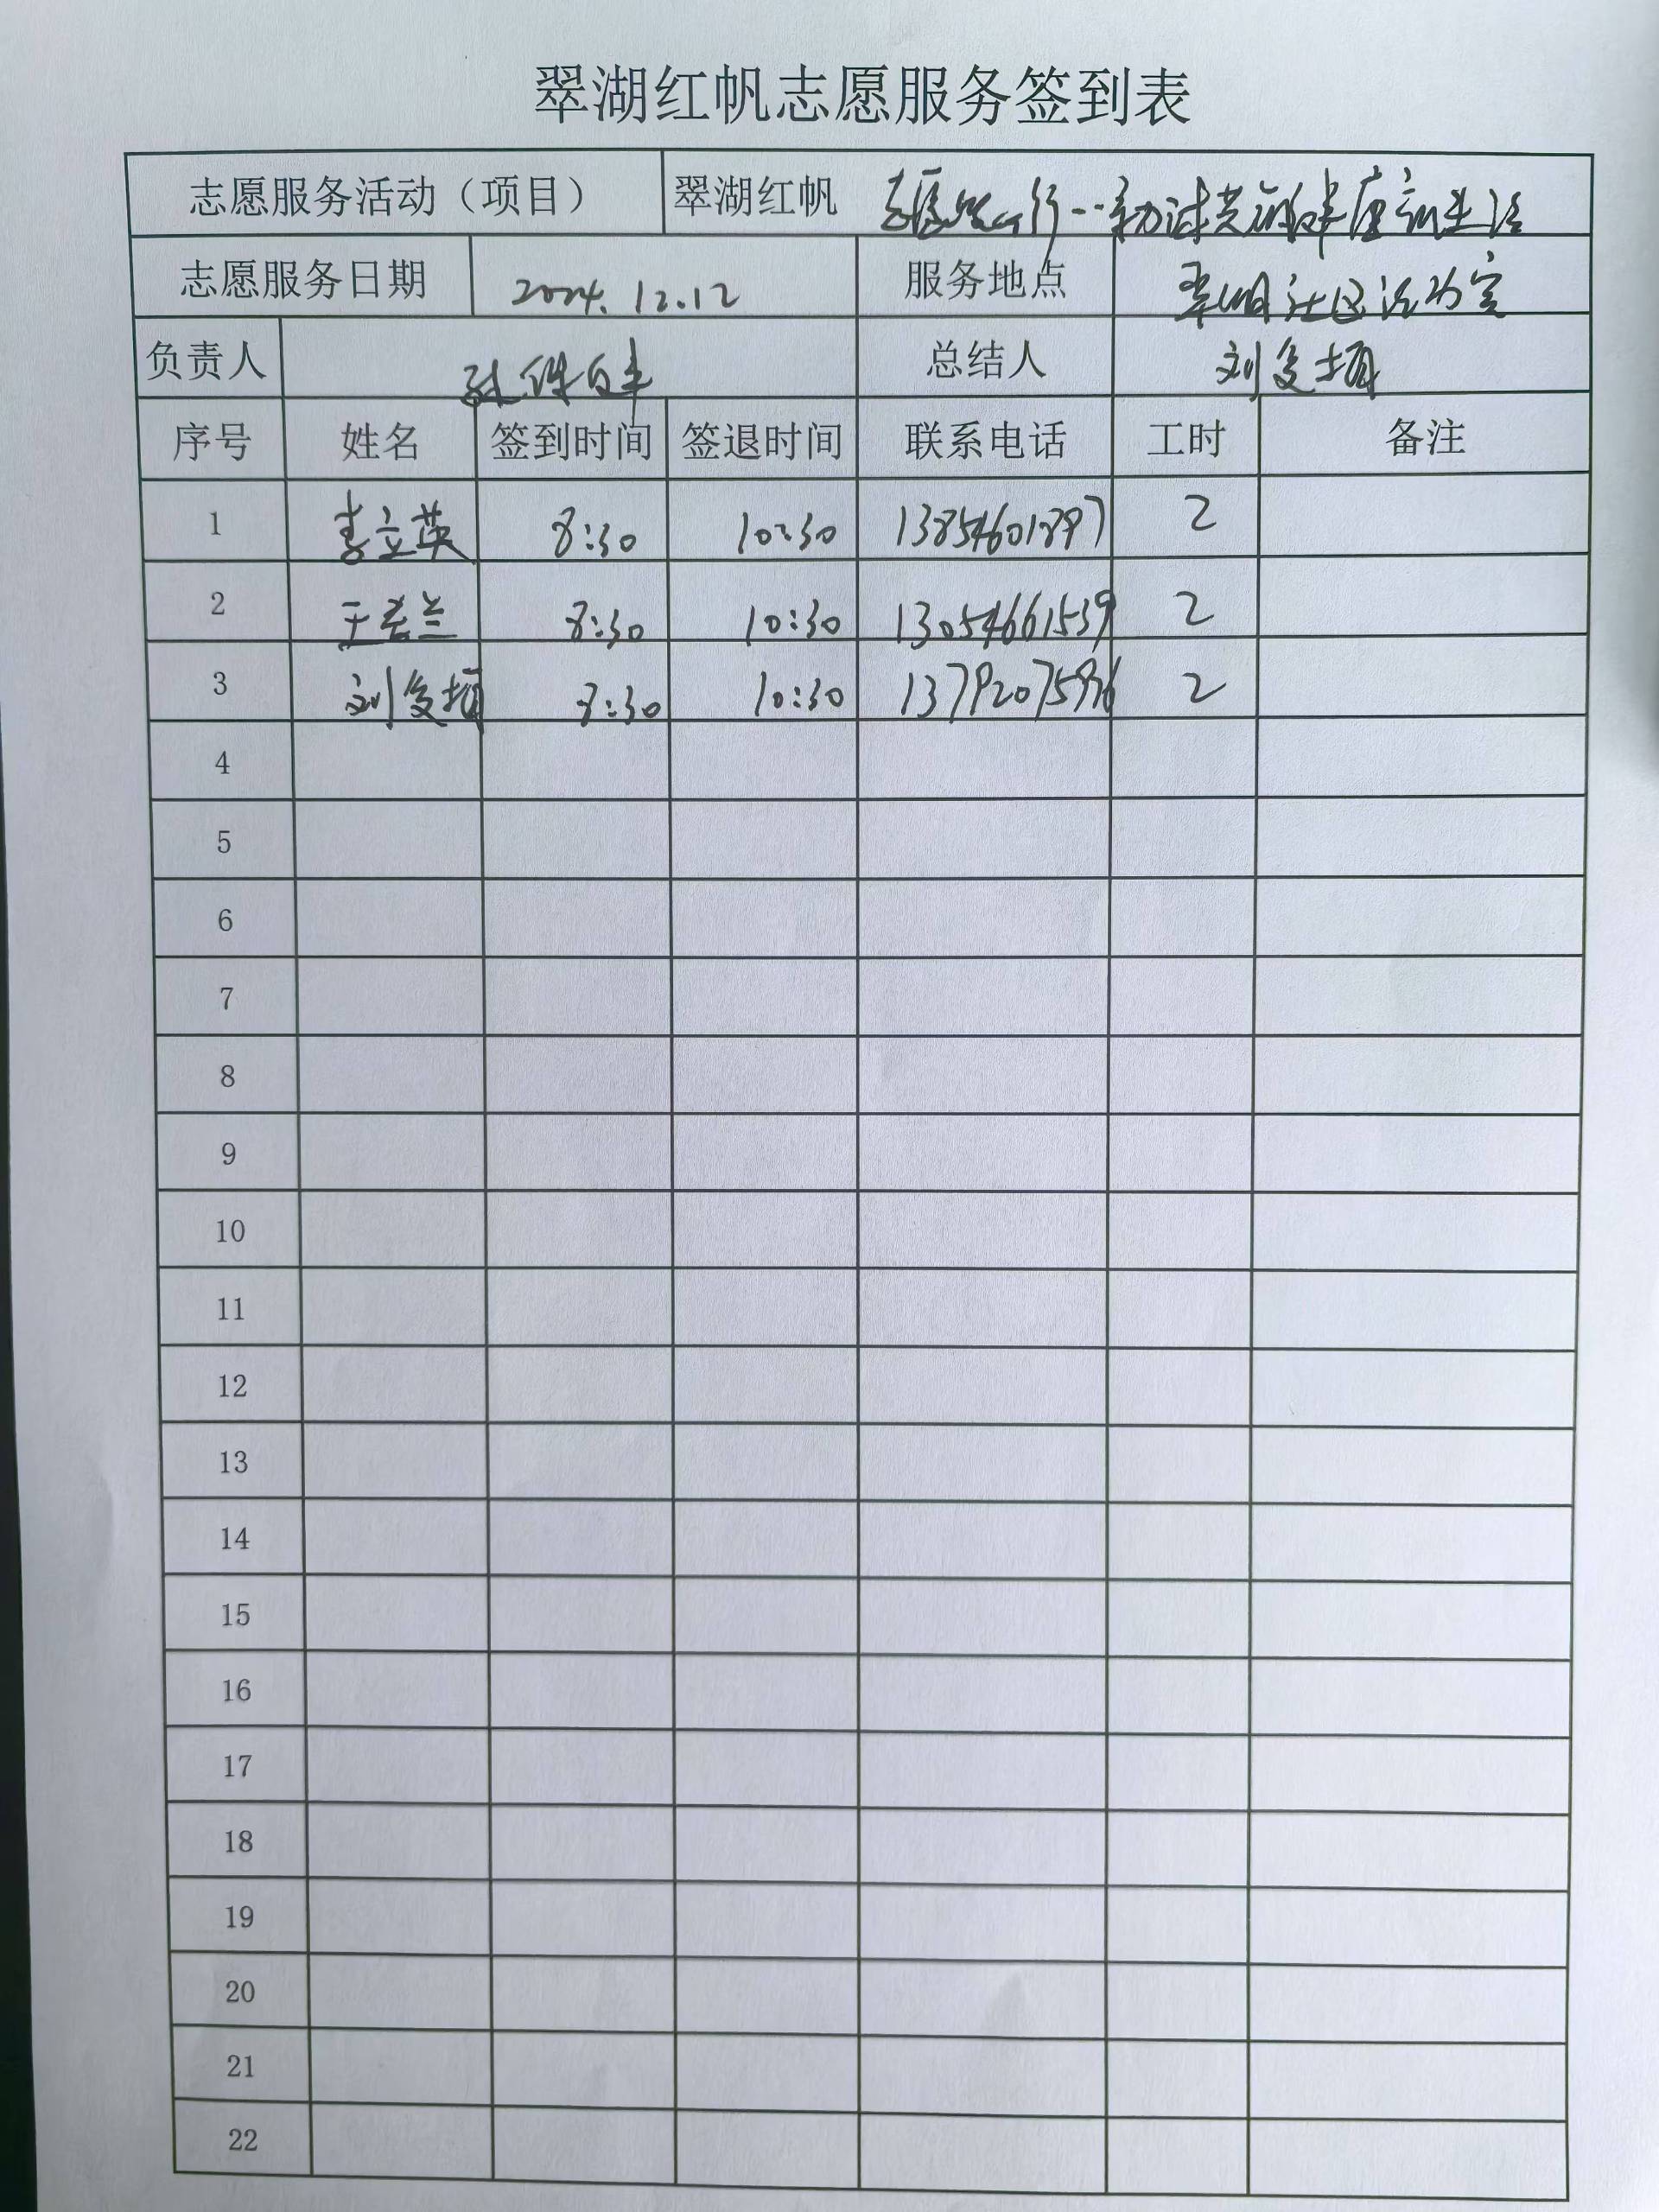 翠湖红帆志愿服务签到表
志愿服务活动（项目） 翠湖红帆
志愿服务日期 2024.12.12 服务地点 翠湖社区活动室
负责人 总结人 刘
序号 姓名 签到时间 签退时间 联系电话 工时 备注
1 李立英 8:30 10:30 13854601897 2
2 兰 8:30 10:30 13054661539 2
3 刘 8:30 10:30 2
4
5
6
7
8
9
10
11
12
13
14
15
16
17
18
19
20
21
22